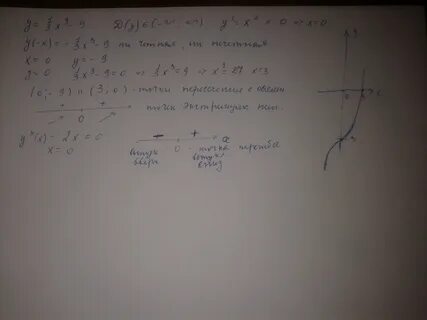 y = 1/3 x³ - 9   D(y) ∈ (-∞; +∞)   y' = x² = 0 ⇒ x=0
y(-x) = -1/3 x³ - 9 ни четная, ни нечетная
x = 0   y = -9
y = 0   1/3 x³ - 9 = 0 ⇒ 1/3 x³ = 9 ⇒ x³ = 27   x = 3
(0; -9) и (3, 0) - точки пересечения с осями
точек экстремума нет.
y''(x) = 2x = 0   -   +   x
x = 0   0 - точка перегиба
выпукл вверх   выпукл вниз
y
0   3   x
-9